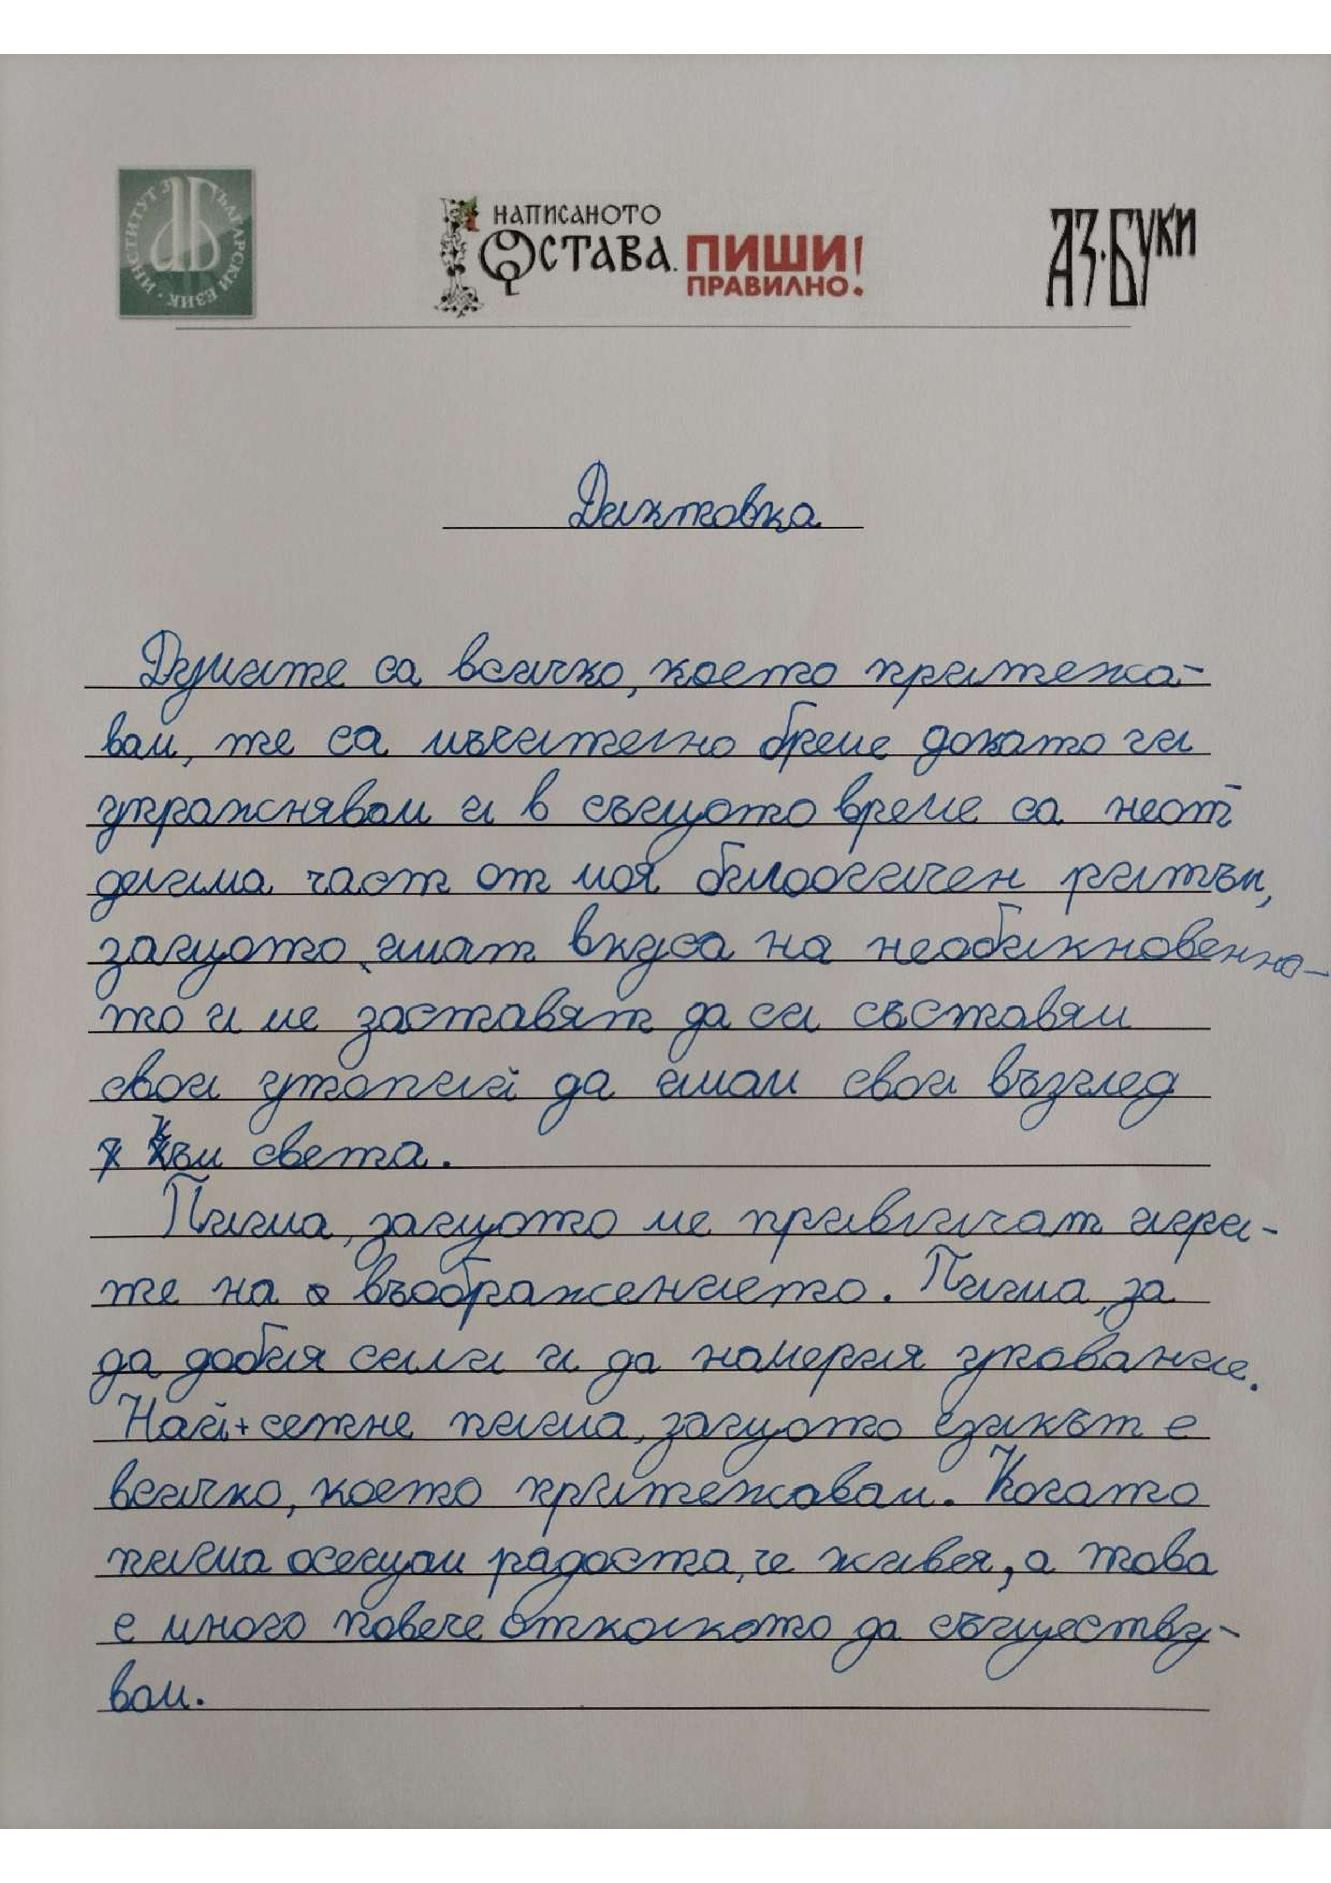 ИНСТИТУТ ЗА БЪЛГАРСКИ ЕЗИК
НАПИСАНОТО
ОСТАВА. ПИШИ
ПРАВИЛНО!
АЗ·БУКИ
Диктовка
Думите са всичко, което притежа-
вам, те са мъчително бреме докато ги
упражнявам и в същото време са неот-
делима част от моя билоогичен ритъм,
защото имат вкуса на необикновенно-
то и ме заставят да си съставям
свои утопии да имам свои възглед
към света.
Пиша, защото ме привличат игри-
те на въображението. Пиша, за
да добия сили и да намеря упование.
Най-сетне пиша, защото езикът е
всичко, което притежавам. Когато
пиша осещам радоста, че живея, а това
е много повече отколкото да съществу-
вам.